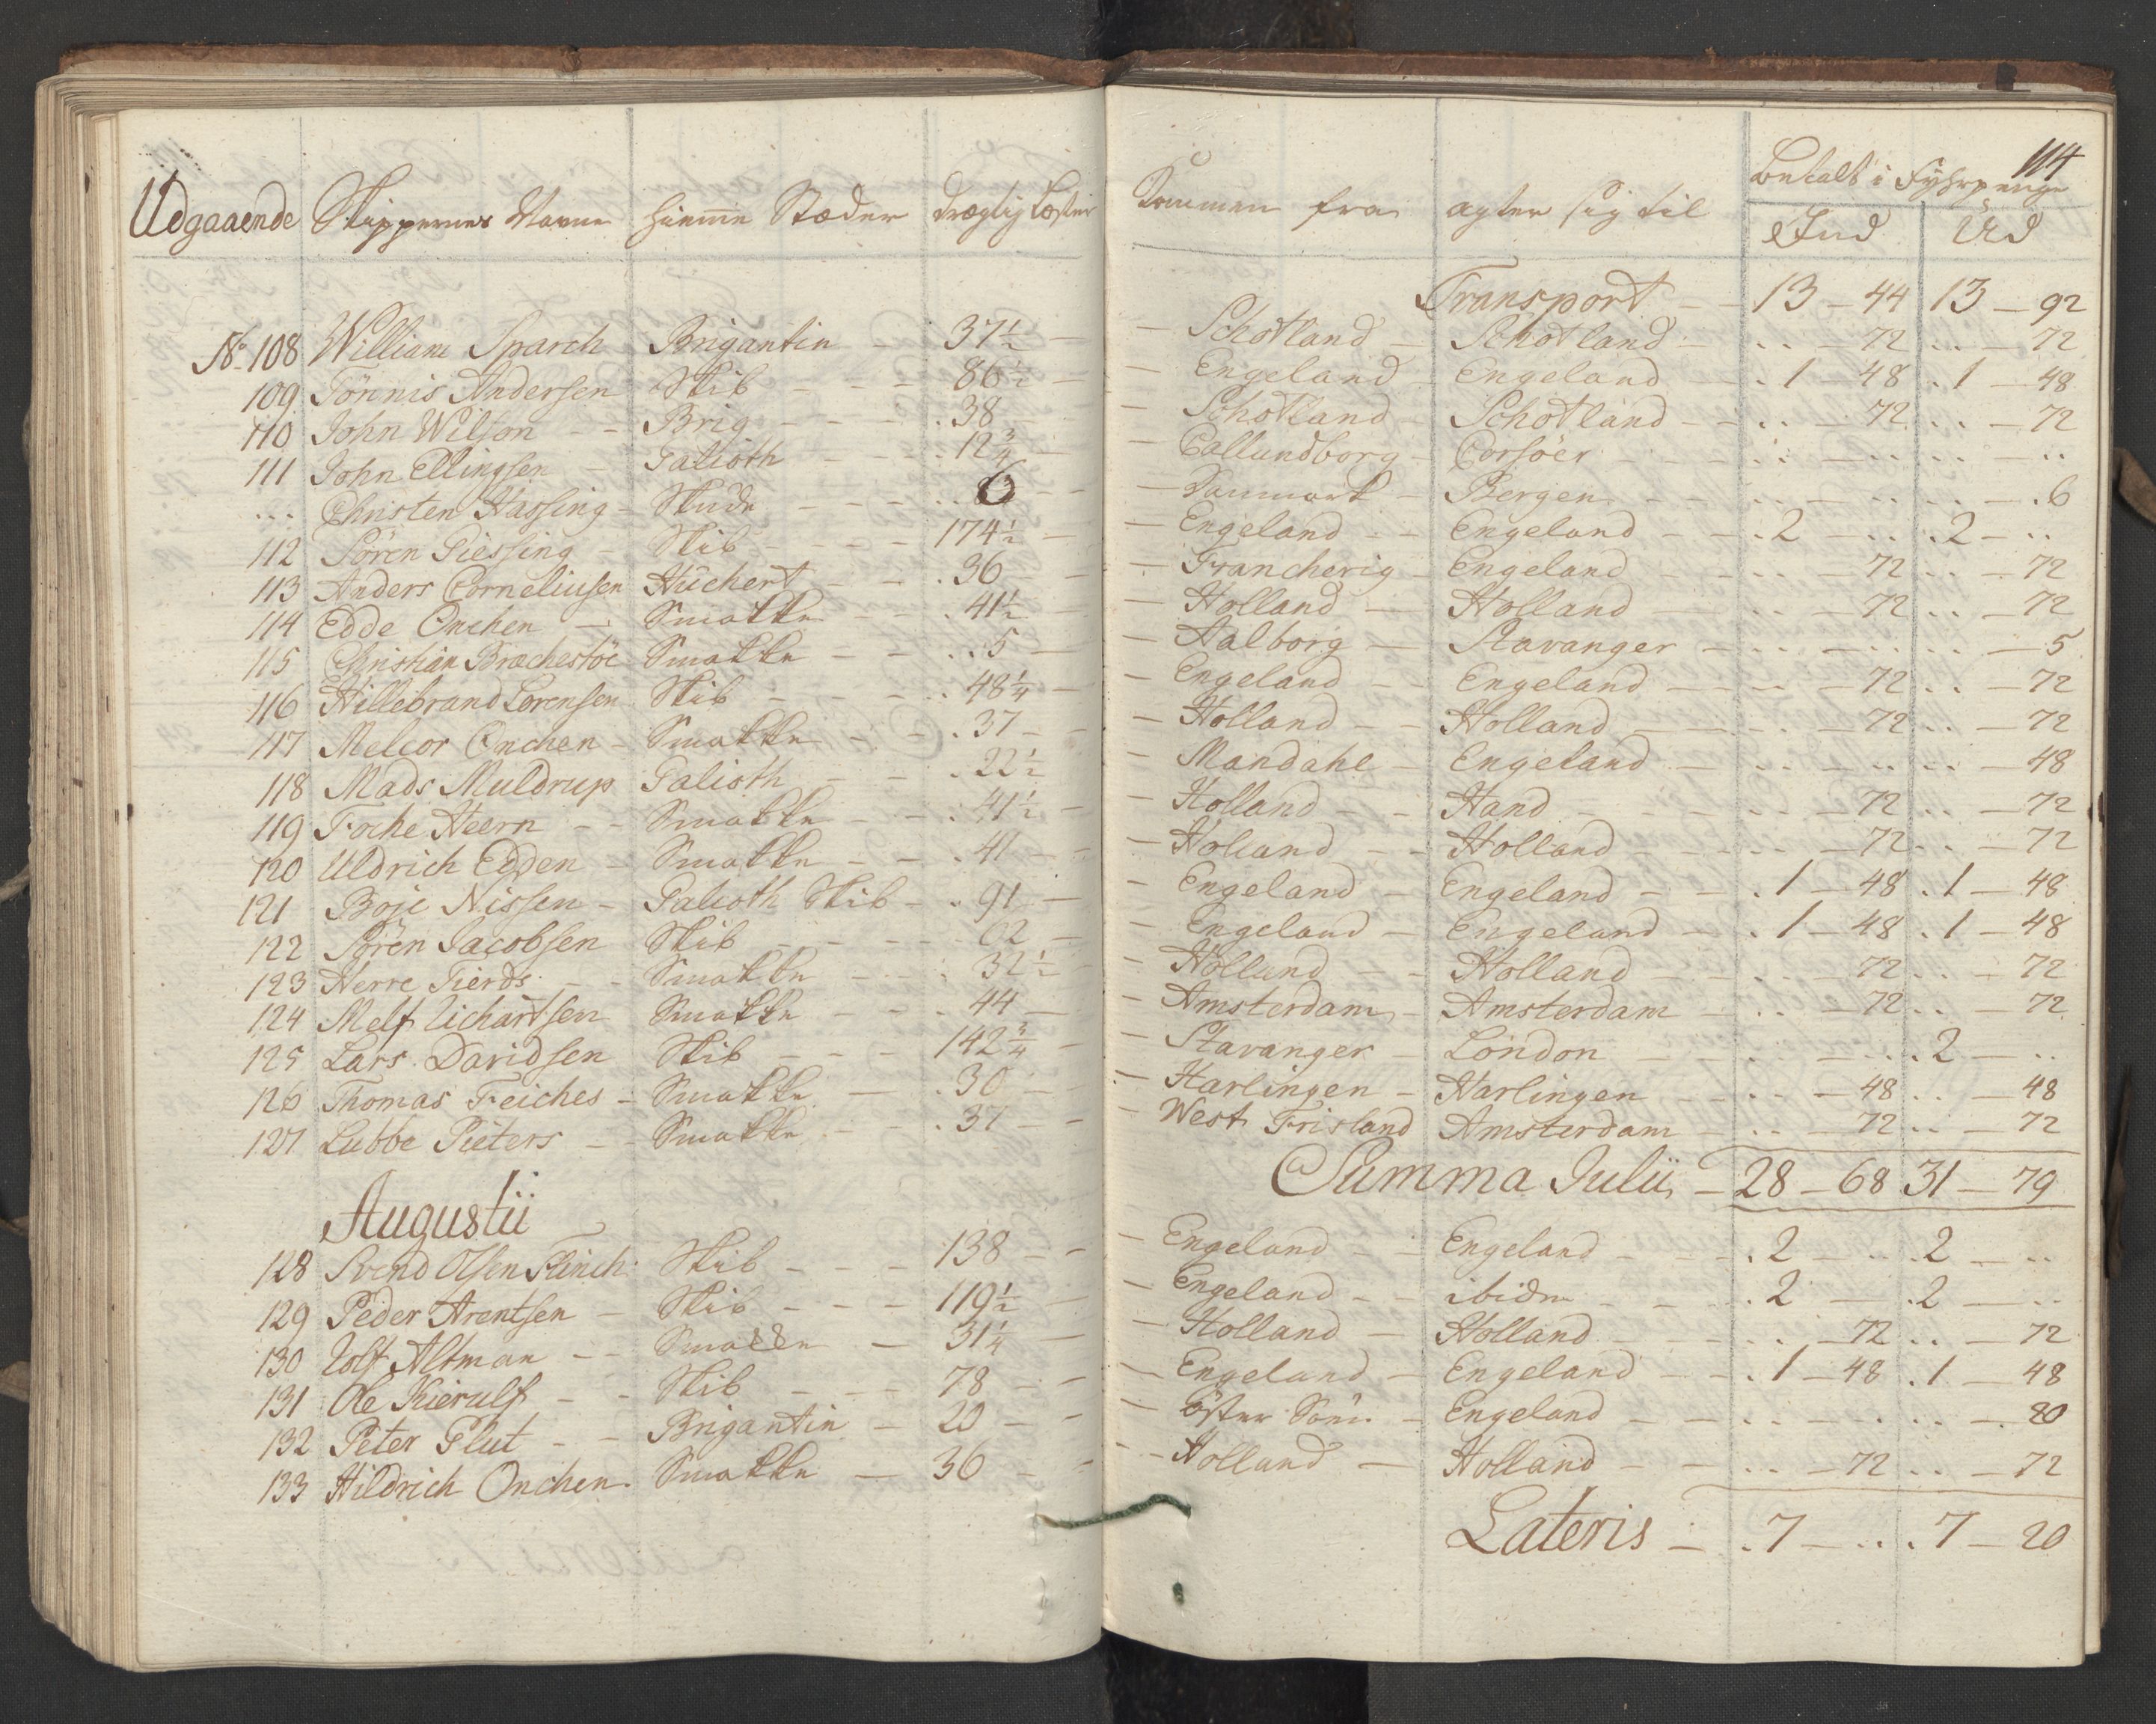 114
Udgaaende Skippernes Navne hiemme Stæder drægtig Læster Kommen fra agter sig til betalt i Fyhrpenge
Ind Ud
Transport — 13 — 44 13 — 92
No 108 William Sparch Brigantin — 37½ — Schotland — Schotland — .. — 72 .. — 72
109 Tönnis Andersen Skib — — — 86½ — Engeland Engeland — . 1 — 48 . 1 — 48
110 John Wilson — — Brig — — — . 38 — Schotland — Schotland — .. — 72 .. — 72
111 John Ellingsen — Galioth — — . 12¾ — Callundborg — Corsöer — .. — .. .. — ..
... Christen Hassing — Skude — — — .. 6 — Danmark — Bergen — .. — .. .. — . 6
112 Sören Giessing — Skib — — — 174½ — Engeland — — Engeland — — . 2 — .. . 2 — ..
113 Anders Corneliusen Huchert — — . 36 — Francherig — Engeland — .. — 72 .. — 72
114 Edde Onchen — Smakke — . 41½ — Holland — Holland — .. — 72 .. — 72
115 Christian Bræchestöe Smakke — — .. 5 — Aalborg — Stavanger — .. — .. .. — 5
116 Hillebrand Lorensen Skib — — — . 48¼ — Engeland — Engeland — .. — 72 .. — 72
117 Melcor Onchen — Smakke — — . 37 — Holland — — Holland — .. — 72 .. — 72
118 Mads Muldrup Galioth — — . 22½ — Mandahl — Engeland — .. — .. .. — 48
119 Foche Heern — — Smakke — — . 41½ — Holland — — Hand — .. — 72 .. — 72
120 Uldrich Edden — Smakke — — . 41 — Holland — — Holland — .. — 72 .. — 72
121 Boje Nissen — Galioth Skib — . 91 — Engeland — Engeland — — . 1 — 48 . 1 — 48
122 Sören Jacobsen Skib — — — . 62 — Engeland — Engeland — . 1 — 48 . 1 — 48
123 Herre Tierds — — Smakke — — . 32½ — Holland — — Holland — .. — 72 .. — 72
124 Melf Richartsen Smakke — — . 44 — Amsterdam — Amsterdam — .. — 72 .. — 72
125 Lars Davidsen Skib — — — 142¾ — Stavanger — London — .. — .. . 2 — ..
126 Thomas Feiches — Smakke — . 30 — Harlingen — Harlingen — .. — 48 .. — 48
127 Lubbe Pieters — — Smakke — — . 37 — West Frisland Amsterdam — .. — 72 .. — 72
Summa Julii — 28 — 68 31 — 79
Augustii
128 Svend Olsen Flinch Skib — — — 138 — Engeland — — Engeland — . 2 — .. . 2 — ..
129 Peder Arentsen — Skib — — — 119½ — Engeland — — ibidm — . 2 — . 2 — ..
130 Rolf Altman — — Smakke — 31¼ — Holland — Holland — .. — 72 .. — 72
131 Ole Kierulf — — Skib — — — 78 — Engeland — Engeland — — . 1 — 48 . 1 — 48
132 Peter Plut — — Brigantin — 20 — Öster Söen — Engeland — .. — .. .. — . 20
133 Hildrich Onchen. Smakke — 36 — Holland — Holland — .. — 72 .. — 72
Lateris — . 7 — .. . 7 — 20